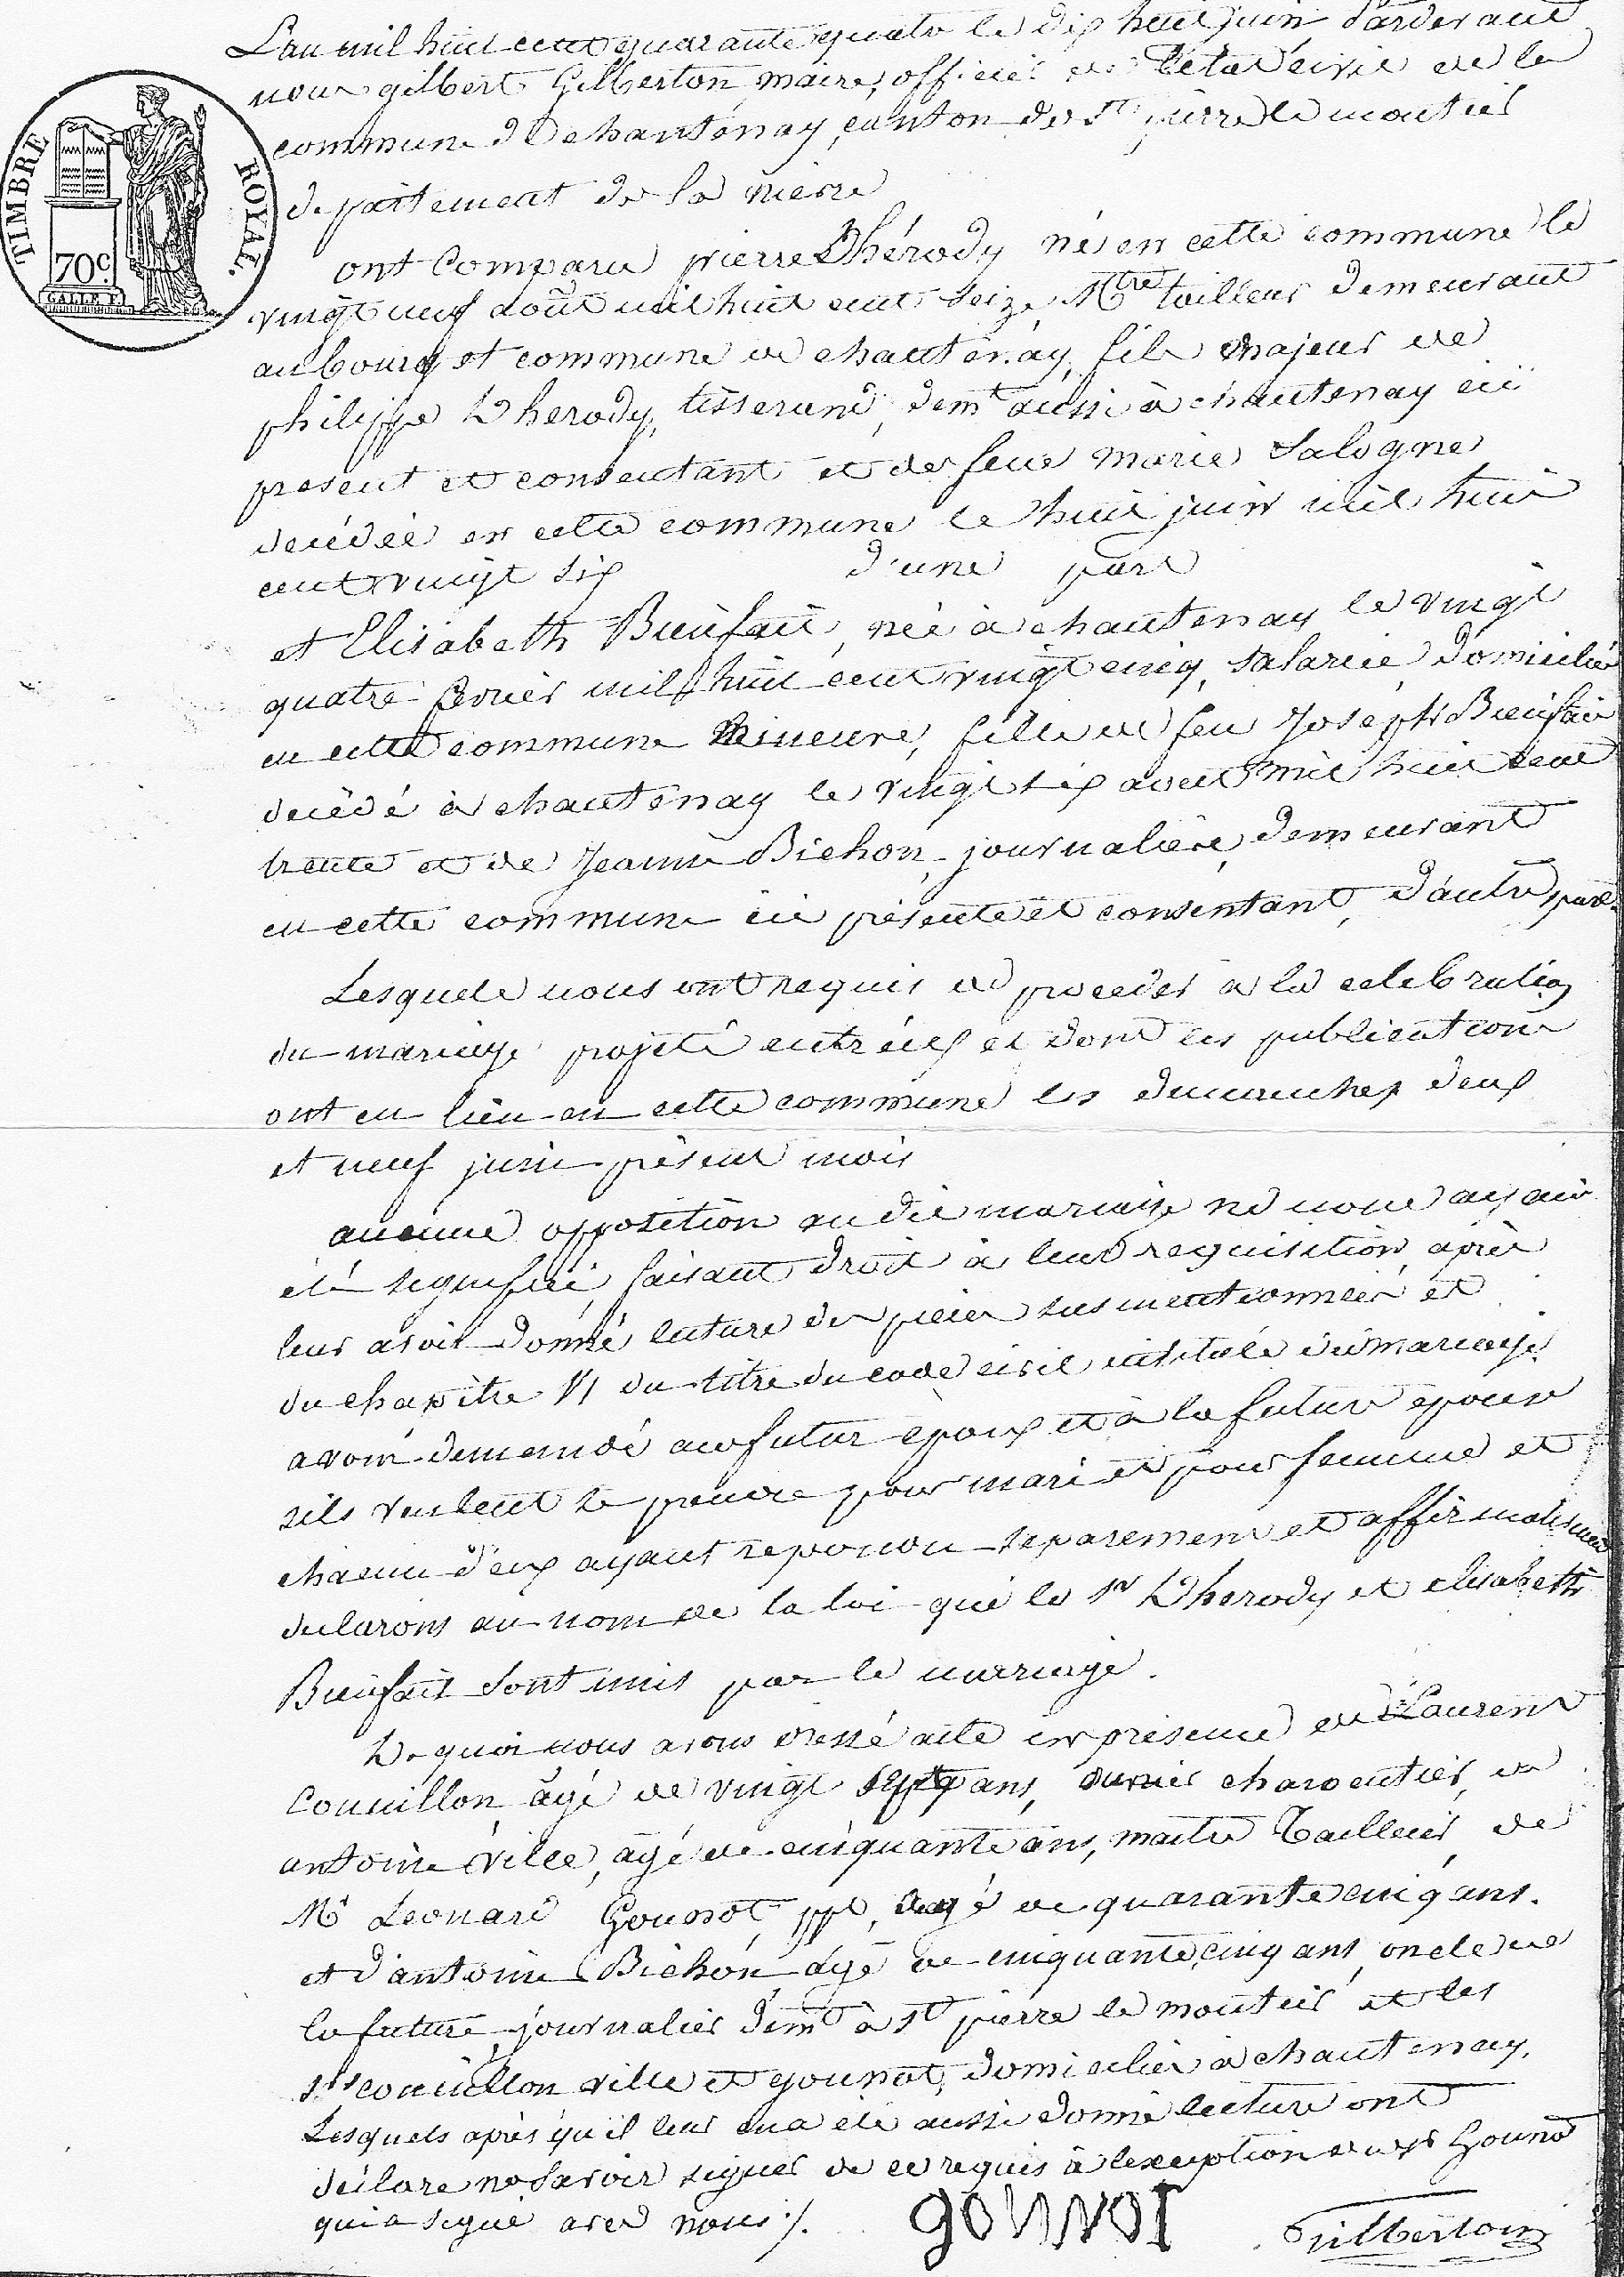 L'an mil huit cent quarante quatre le dix huit juin, pardevant
nous gilbert Gilberton maire, officier de l'état civil de la
commune de chantenay, canton de St pierre le moutier
TIMBRE ROYAL.
70c
GALLE F.
département de la nievre
ont Comparu pierre Dhérody né en cette commune le
vingt neuf août mil huit cent seize Mtre tailleur demeurant
au bourg et commune de chantenay, fils majeur de
philippe Dherody, tisserand, demt aussi à chantenay ici
présent et consentant et de feue marie Salogne
décédée en cette commune le huit juin mil huit
cent vingt six d'une part
et Elisabeth Bienfait, née à chantenay le vingt
quatre fevrier mil huit cent vingt cinq, salariée, domiciliée
en cette commune Mineure, fille de feu Joseph Bienfait
décédé à chantenay le vingt six avril mil huit cent
trente et de Jeanne Bichon, journalière, demeurant
en cette commune ici présente et consentant, d'autre part.
Lesquels nous ont requis de proceder à la celebration
du mariage projeté entr'eux et dont les publications
ont eu lieu en cette commune les dimanches deux
et neuf juin présent mois
aucune opposition au dit mariage ne nous ayant
été signifiée, faisant droit à leur requisition, après
leur avoir donné lecture des pièces susmentionnées et
du chapitre VI du titre du code civil intitulé du mariage
avons demandé au futur époux et à la future épouse
sils veulent se prendre pour mari et pour femme et
chacun d'eux ayant repondu séparement et affirmativement
declarons au nom de la loi que le Sr Dherody et elisabeth
Bienfait sont unis par le mariage.
De quoi nous avons dressé acte en présence de Laurent
Couillon âgé de vingt sept ans, ouvrier charpentier, de
antoine ville, âgé de cinquante ans, maitre Tailleur, de
Mr Leonard Gounot, ppre, âgé de quarante cinq ans.
et d'antoine Bichon âgé de cinquante cinq ans, oncle de
la future, journalier demt à St pierre le moutier et les
Srs couillon ville et gounot, domiciliés à chantenay,
Lesquels après qu'il leur en a été aussi donné lecture ont
déclaré ne savoir signer de ce requis à l'exception de mr Gounot
qui a signé avec nous ./.
goUNOT
Gilberton